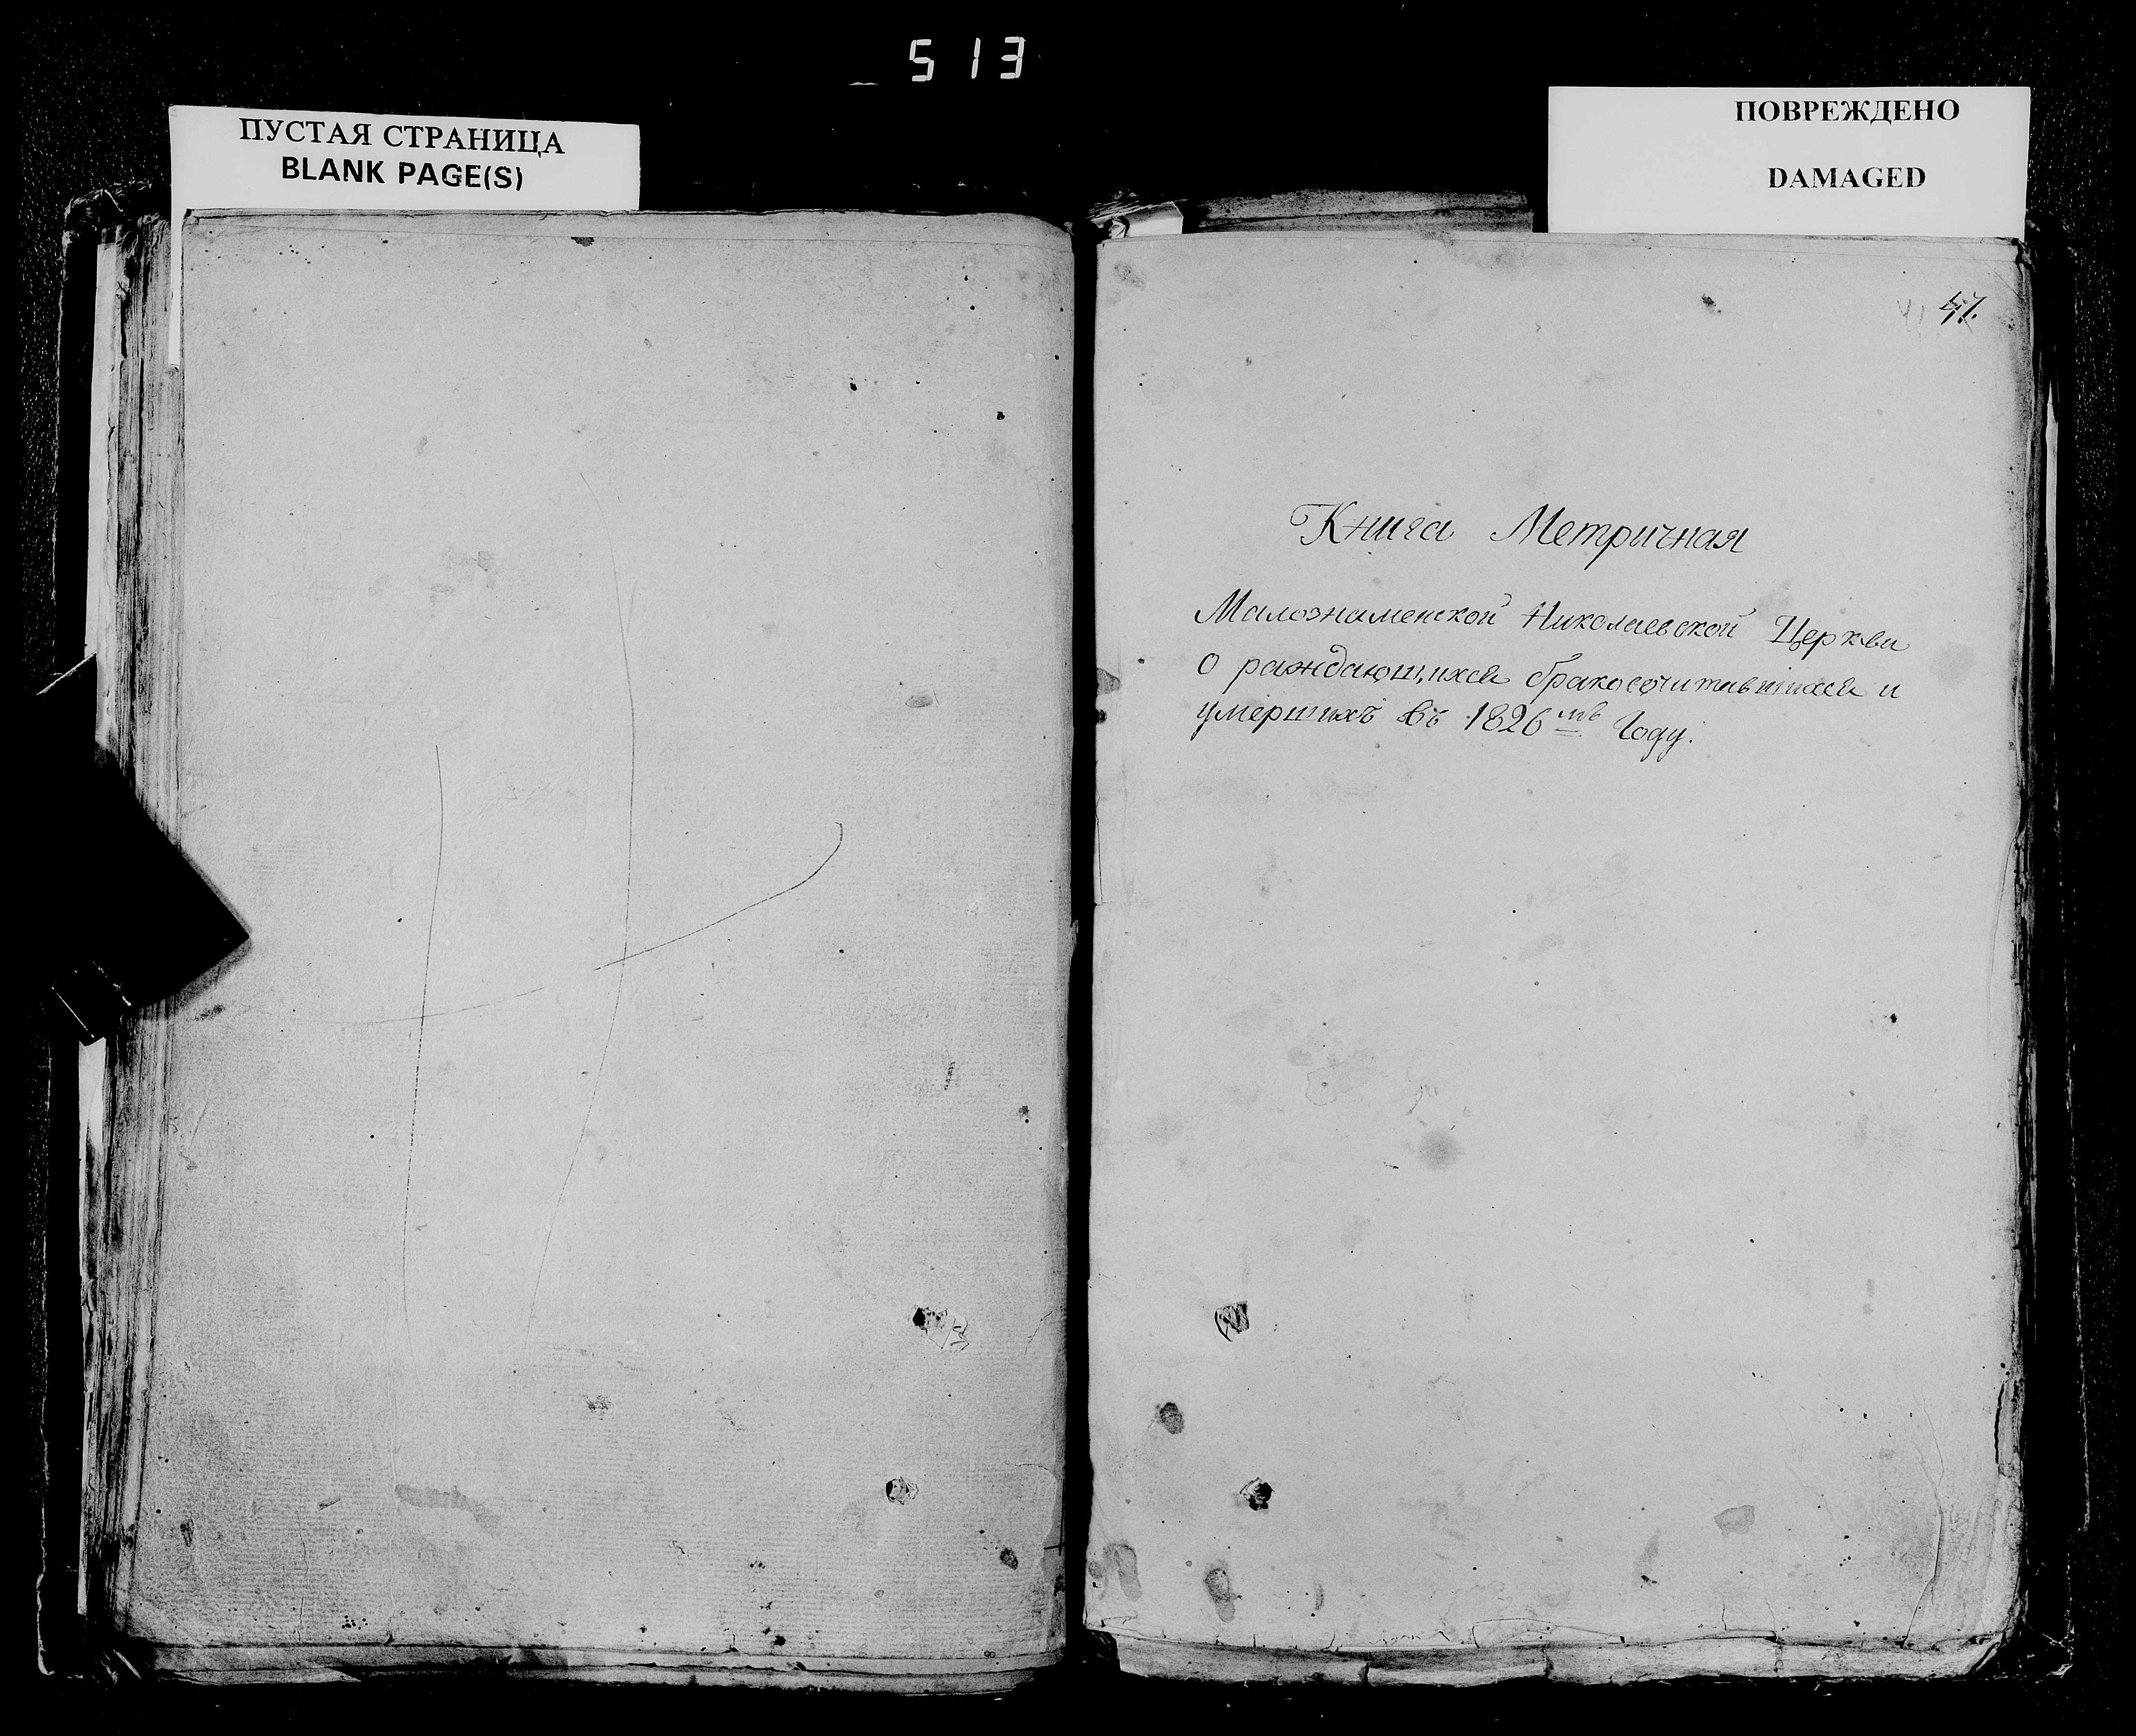 513
ПУСТАЯ СТРАНИЦА
BLANK PAGE(S)
ПОВРЕЖДЕНО
DAMAGED
Книга Метричная
Малознаменской Николаевской Церкви
о раждающихся бракосочитавшихся и
умершихъ въ 1826мъ Году.